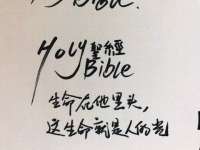 Bible.
Holy 聖經
Bible
生命在他里头,
这生命就是人的光